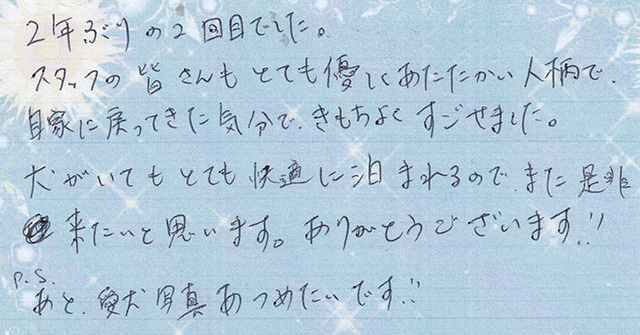 2年ぶりの2回目でした。
スタッフの皆さんもとても優しくあたたかい人柄で、
自家に戻ってきた気分で、きもちよくすごせました。
犬がいてもとても快適に泊まれるので、また是非
来たいと思います。ありがとうございます!!
P.S.
あと、愛犬写真あつめたいです!!